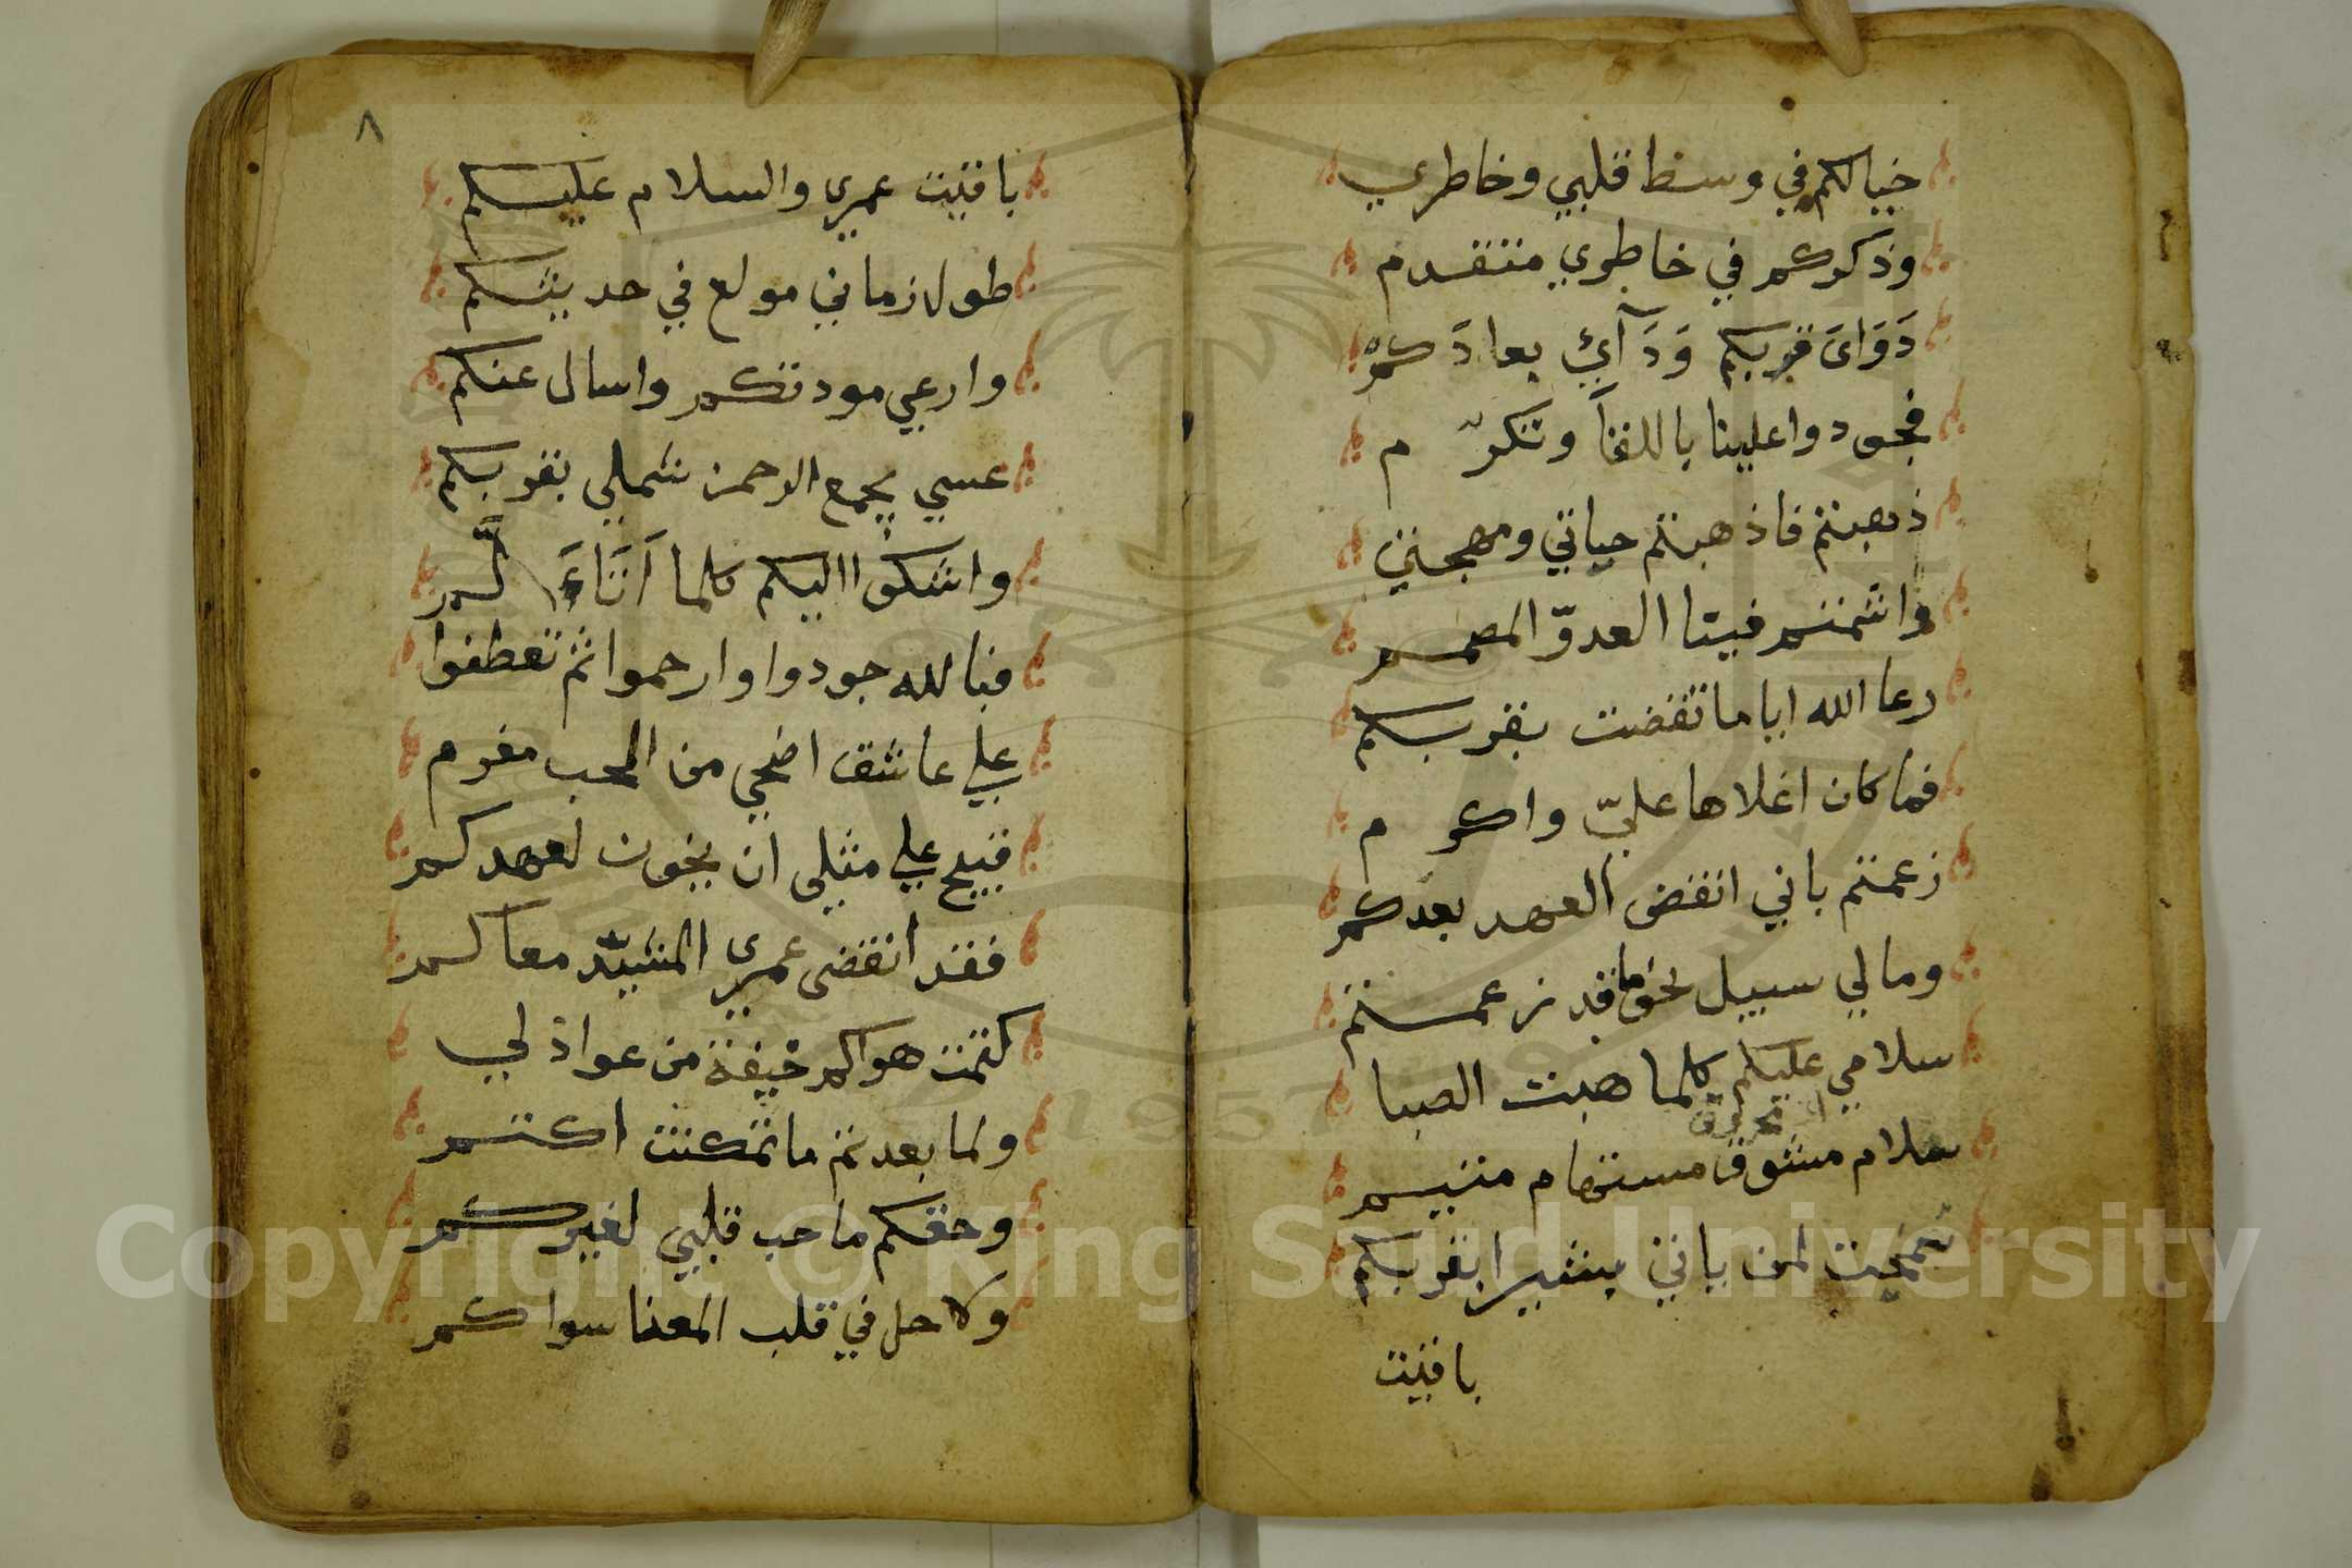 خيالكم في وسط قلبي وخاطري
وذكركم في خاطري متقدم
دَوَاىَ قربكم وَدَآئي بعادَكمْ
فجودوا علينا باللقآ وتكرّم
ذهبتم فاذهبتم حياتي ومهجتي
واشمتم فيتا العدوّ المصمم
رعا الله اياما تقضت بقربكم
فما كان اغلاها عليّ واكرم
زعمتم باني انقض العهد بعدكم
ومالي سبيل نحو ما قد زعمتم
سلامي عليكم كلما هبت الصبا
سلام مشوق مستهام متيم
سمحت لمن ياتي بشيرا بقربكم
باقيت
٨
باقيت عمري والسلام عليكم
طول زماني مولع في حديثكم
وارعي مودتكم واسال عنكم
عسي يجمع الرحمن شملي بقربكم
واشكوا اليكم كلما
فبالله جودوا وارحموا ثم تعطفوا
علي عاشق اضحي من الحب مغرم
قبيح علي مثلي ان يخون لعهدكم
فقد انقضي عمري المشيد معاكم
كتمت هواكم خيفة من عواذلي
ولما بعدتم ما تمكنت اكتم
وحقكم ما حب قلبي لغيركم
ولا حل في قلب المعنا سواكم
Copyright © King Saud University
1957